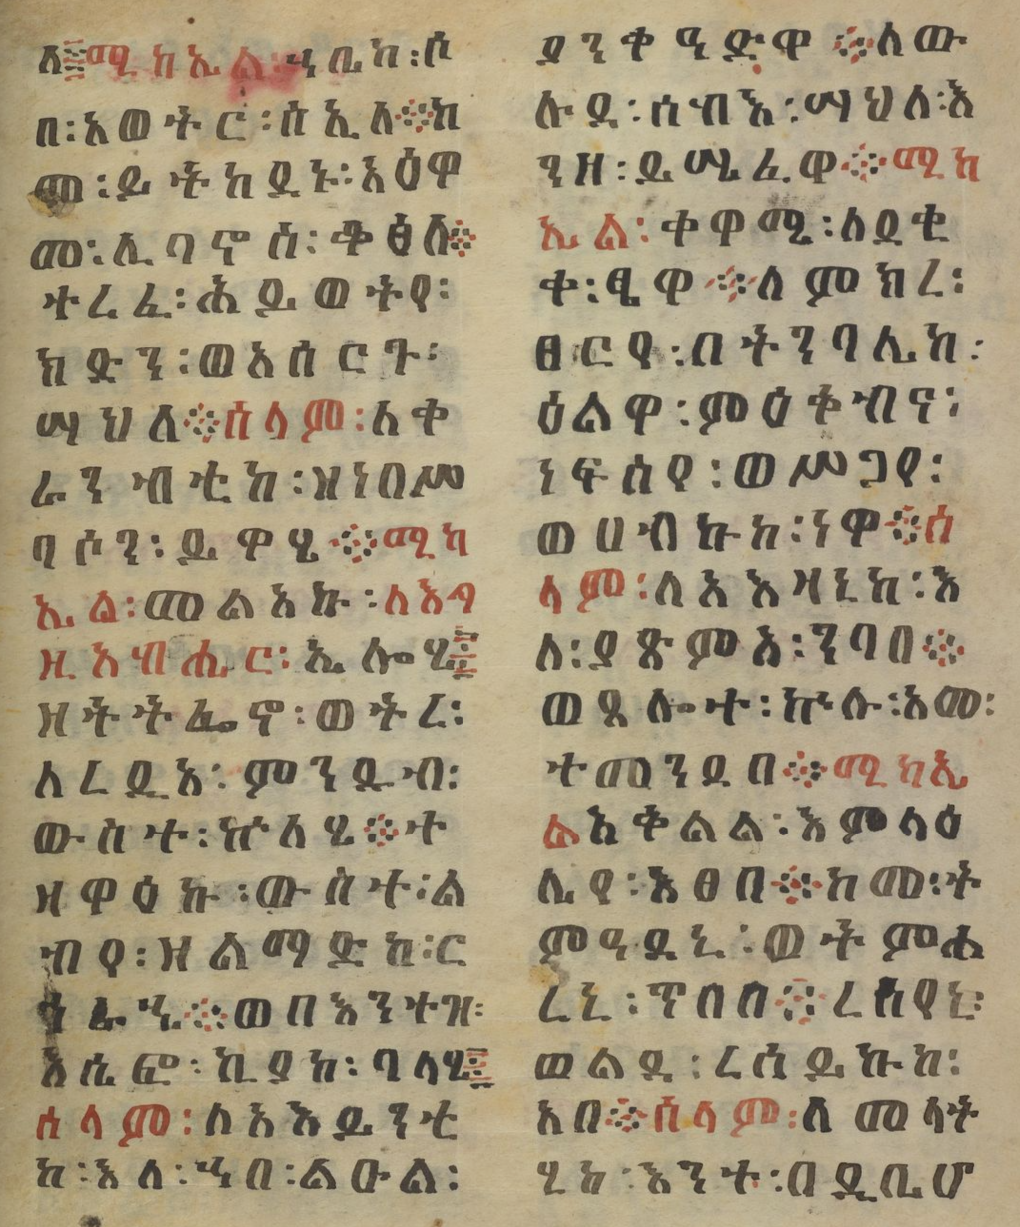 ለ፨ሚከኢል፡ኂሲከ፡ሶ
በ፡አወትር፡ሰኢለ፨ከ
መ፡ይትከደኑ፡እዕዋ
መ፡ሊባኖስ፡ቆፅለ፨
ተረፈ፡ሕይወትየ፡
ክድን፡ወአሰርጉ፡
ማህለ፨ሰላም፡ለቀ
ራንብቲከ፡ዝነበሥ
ባሶን፡ይዋሂ፨ሚካ
ኢል፡መልአኩ፡ለእግ
ዚአብሔር፡ኤሎሂ፨
ዘትትፌኖ፡ወትረ፡
ለረድአ፡ምንዱብ፡
ውስተ፡ኵለሄ፨ተ
ዘዋዕኩ፡ውስተ፡ል
ብየ፡ዝልማድከ፡ር
ኅራኄ፨ወበእንተዝ፡
እሴፎ፡ኪያከ፡ባላሂ፨
ሰላም፡ለአእይንቲ
ከ፡እለ፡ኄበ፡ልዑል፡
ያንቀዓድዋ፨ለው
ሉደ፡ሰብእ፡ማህለ፡እ
ንዘ፡ይሜፈዋ፨ሚከ
ኢል፡ቀዋሚ፡ለደቂ
ቀ፡ፄዋ፨ለምክረ፡
ፀርየ፡በትንባሌከ፡
ዕልዋ፡ምዕቀብና፡
ነፍሰየ፡ወሥጋየ፡
ወሀብኩከ፡ነዋ፨ሰ
ላም፡ለአእዛኒከ፡እ
ለ፡ያጽምአ፡ንባበ፨
ወጸሎተ፡ኵሉ፡አመ፡
ተመንደበ፨ሚካኢ
ልአቅልል፡እምላዕ
ሌየ፡እፀበ፨ከመ፡ት
ምዓደኒ፡ወትምሐ
ረኒ፡ጥበበ፨ረሰየኒ፡
ወልደ፡ረሰይኩከ፡
አበ፨ሰላም፡ለመላት
ሂከ፡እንተ፡በዲቤሆ